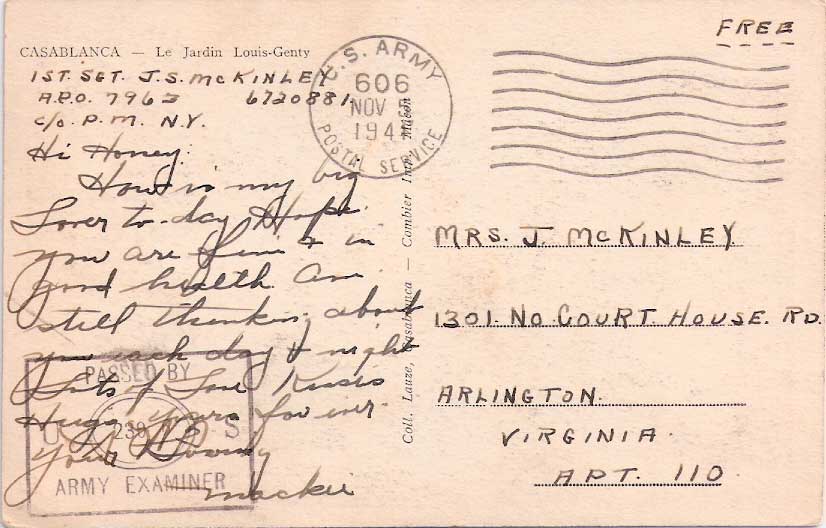 FREE
CASABLANCA — Le Jardin Louis-Genty
1ST. SGT. J.S. McKINLEY
A.P.O. 7963 6720881
c/o. P.M. N.Y.
Hi Honey.
How is my big
Lover to-day Hope.
you are fine & in
good health. Am
still thinking about
you each day & night
Lots of Love Kisses
Hugs yours for ever.
your Loving
Mackie
U.S. ARMY
606
NOV
194
POSTAL SERVICE
PASSED BY
U S
ARMY EXAMINER
Coll. Lauze, Casablanca — Combier Imp. Mâcon
MRS. J. McKINLEY
1301. NO. COURT HOUSE. RD.
ARLINGTON.
VIRGINIA.
APT. 110